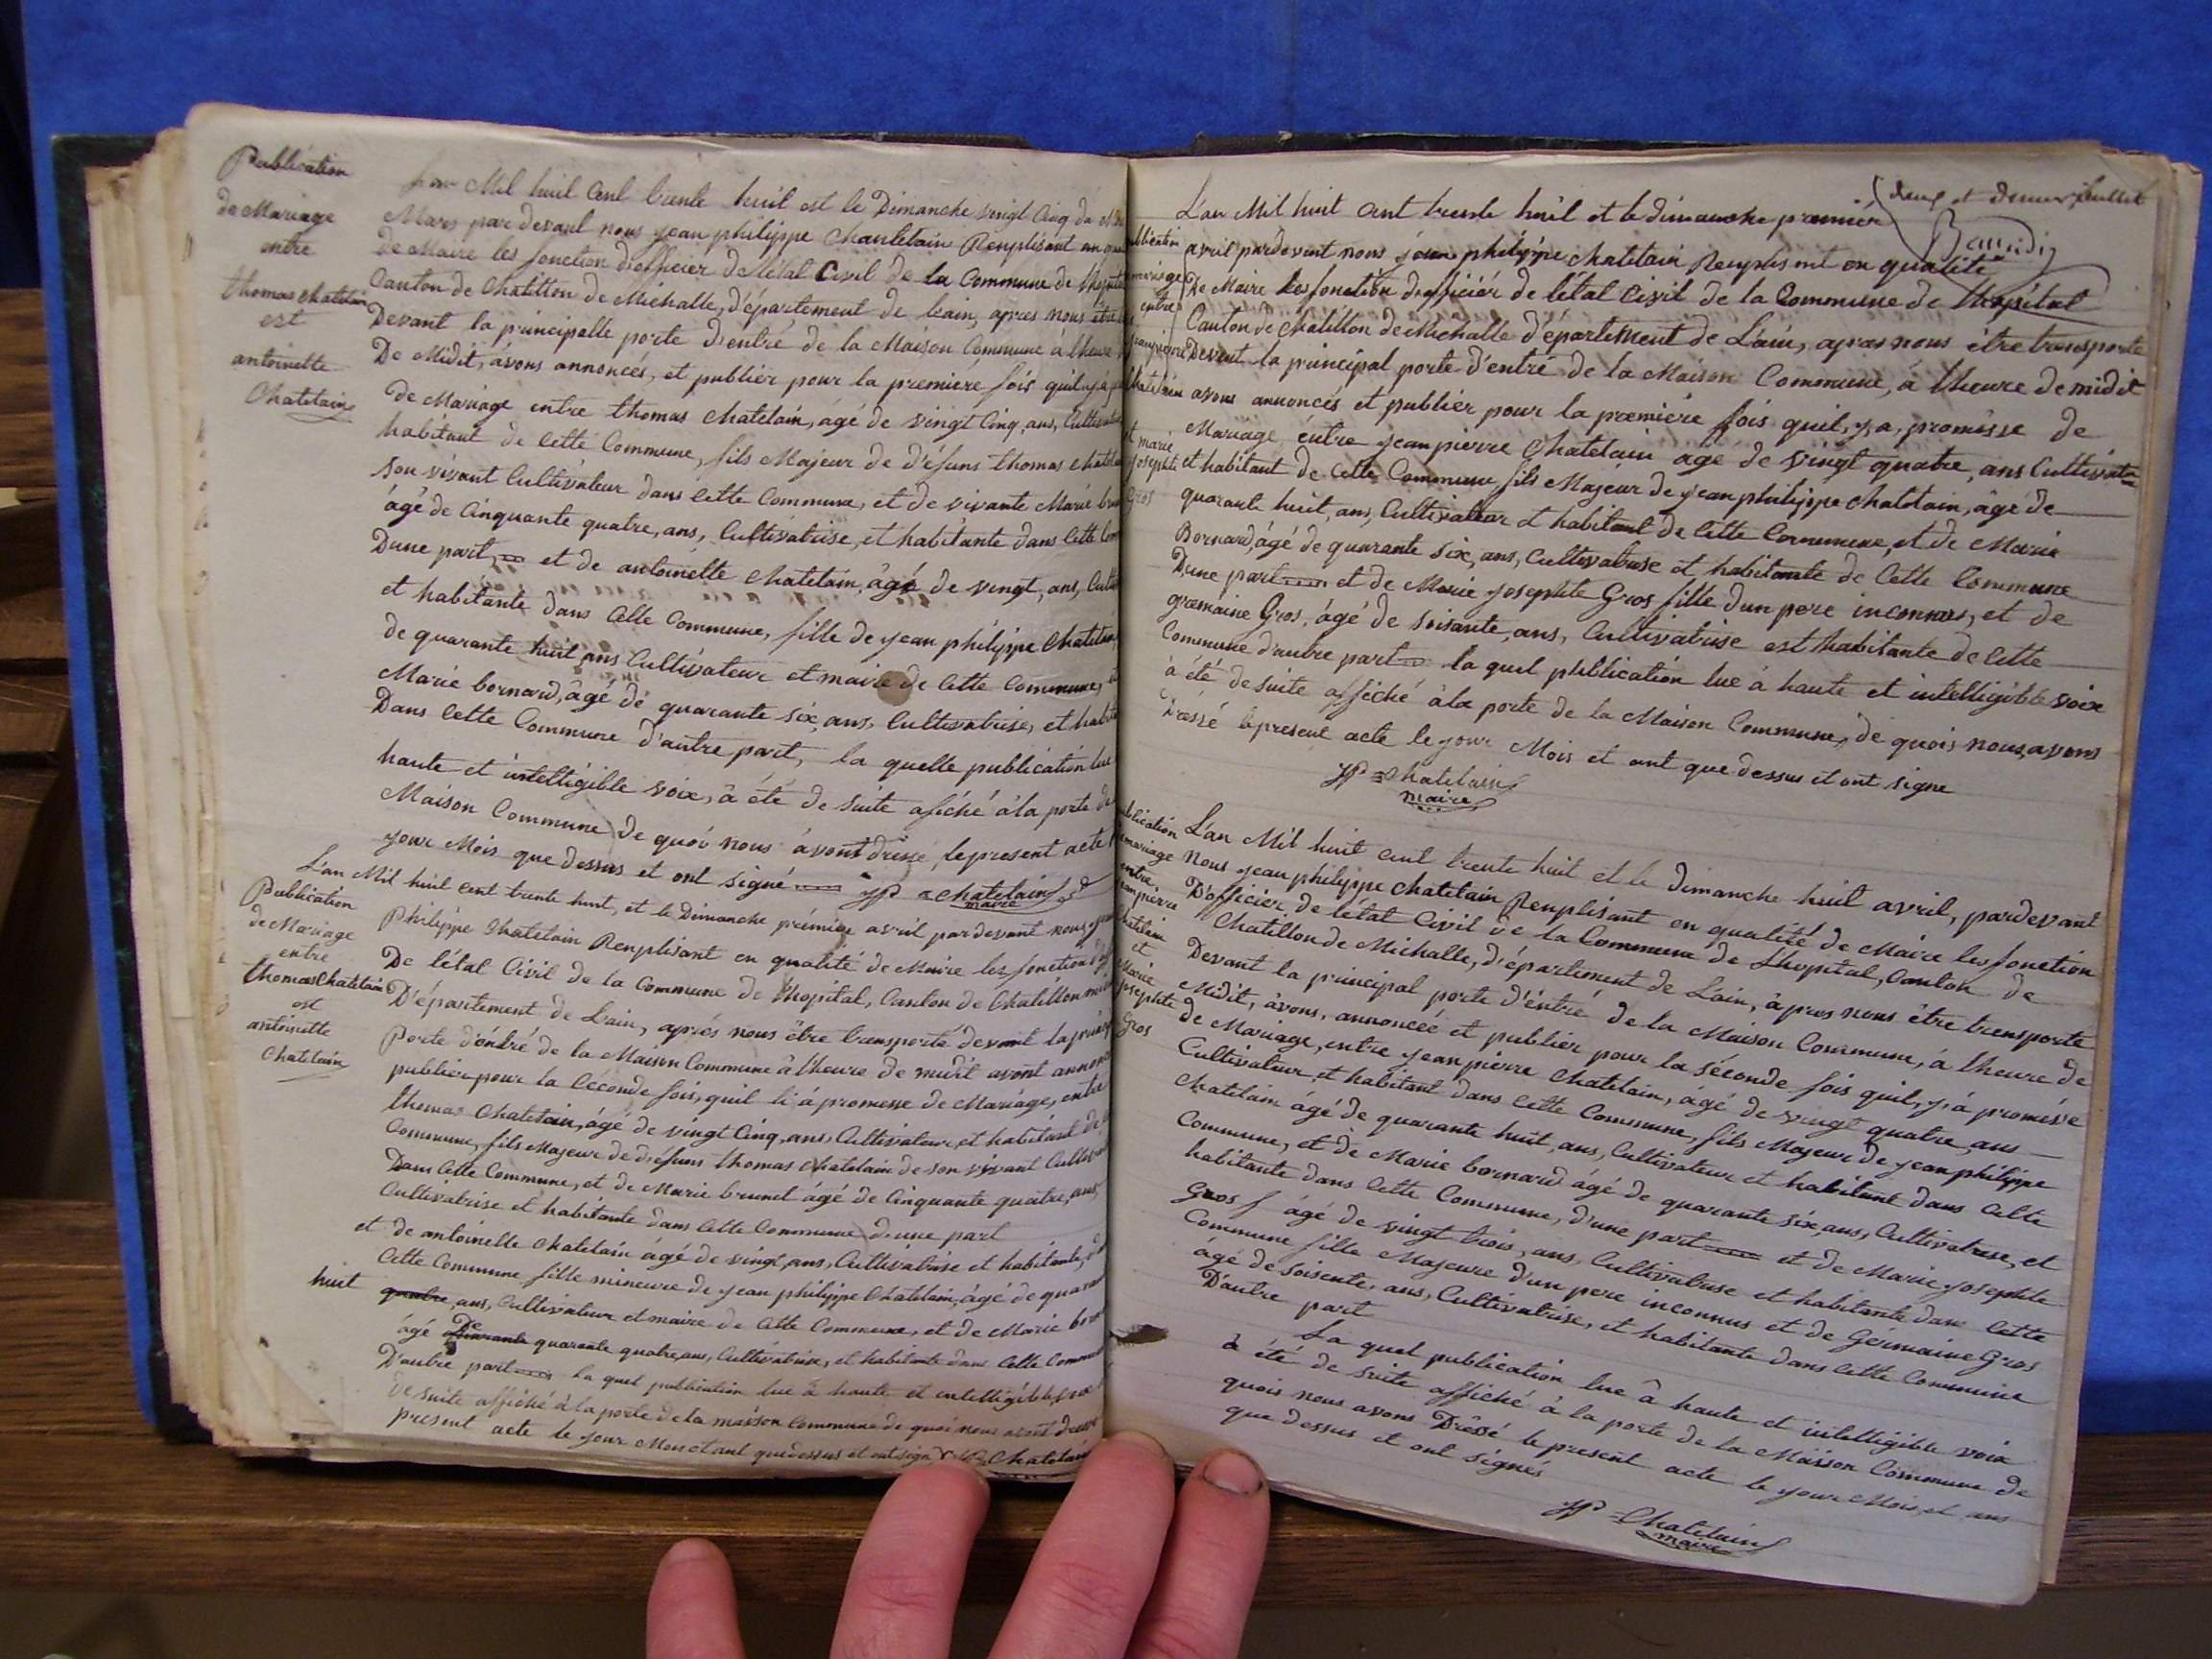 Publication
de Mariage
entre
thomas chatelain
est
antoinette
Chatelain
L'an Mil huit Cent trente huit est le Dimanche vingt Cinq du
Mars par devant nous jean philippe Chantelain Renplisant en
de Maire les fonction d'officier de l'état Civil de la Commune de
Canton de Chatillon de Michalle, d'épartement de Lain, apres nous être
Devant la principalle porte d'entré de la Maison Commune a lheure
De Midit, avons annoncés, et publier pour la premiere fois quil y à
de Mariage entre thomas chatelain, âgé de vingt Cinq, ans, Cultivateur
habitant de Cette Commune, fils Majeur de d'éfuns thomas
son vivant Cultivateur dans Cette Commune, et de vivante Marie
âgé de Cinquante quatre, ans, Cultivatrise, et habitante dans Cette
Dune part, et de antoinette chatelain, âgé de vingt, ans,
et habitante dans Cette Commune, fille de jean philippe Chatelain,
de quarante huit ans Cultivateur et maire de Cette Commune,
Marie bornard, âgé de quarante six, ans, Cultivatrise, et
Dans Cette Commune d'autre part, la quelle publication lue
haute et intelligible voix, à été de suite afiché à la porte de
Maison Commune de quoi nous avont dressé, le present acte
jour Mois que dessus et ont signé JP = chatelain
maire
Publication
de Mariage
entre
thomas chatelain
est
antoinette
Chatelain
L'an Mil huit Cent trente huit, et le Dimanche prémier avril pardevant nous
Philippe Chatelain Renplisant en qualité de Maire les fonction
De l'état Civil de la Commune de lhopital, Canton de Chatillon
D'épartement de Lain, aprés nous être transporté devant la
Porte d'éntré de la Maison Commune à lheure de midit avont
publier pour la séconde fois, quil li à promesse de Mariage, entre
thomas Chatelain, âgé de vingt Cinq, ans, Cultivateur, et habitant de
Commune, fils Majeur de d'efuns thomas chatelain de son vivant
Dans Cette Commune, et de Marie brunet âgé de Cinquante quatre, ans,
Cultivatrise et habitante dans Cette Commune d'une part
et de antoinette Chatelain âgé de vingt, ans, Cultivatrise et habitante,
Cette Commune fille mineure de jean philippe Chatelain, âgé de
huit quatre, ans, Cultivateur et maire de Cette Commune, et de Marie
âgé De quarante quatre, ans, Cultivatrise, et habitante dans Cette
D'autre part la quel publication lue à haute et intelligible
de suite affiché à la porte de la maison Commune de quoi nous avont
present acte le jour Mois et ant que dessus et ont signé JP Chatelain
L'an Mil huit Cent trente huit et le dimanche premier
avril pardevent nous jean philippe chatelain Renplisant en qualité
De Maire les fonction d'officiér de létal Civil de la Commune de lhopital
Canton de Chatillon de Michalle d'épartement de L'ain, apres nous être transporte
Devent la principal porte d'entré de la Maison Commune, à lheure de midit
avons annoncés et publier pour la premiére fois quil, y, a, promisse de
Mariage entre jean pierre Chatelain âgé de vingt quatre, ans
et habitant de Cette Commune fils Majeur de jean philippe chatelain, âgé de
quarante huit, ans, Cultivateur et habitant de Cette Commune, et de Marie
Bornard, âgé de quarante six, ans, Cultivatrise et habitante de Cette Commune
D'une part et de Marie josephte Gros fille dun pere inconnus, et de
germaine Gros, âgé de soisante, ans, Cultivatrise est habitante de Cette
Commune d'autre part la quel publication lue à haute et intelligible voix
à été de suite afféché à la porte de la Maison Commune, de quois nous, avons
Dressé le present acte le jour Mois et ant que dessus et ont signe
JP = chatelain
maire
entre
jean pierre
et
Marie
josephte
Gros
L'an Mil huit cent trente huit et le Dimanche huit avril, pardevant
Nous jean philippe Chatelain Renplisant en qualité de Maire les fonction
D'officiér de l'état Civil de la Commune de Lhopital, Canton de
Chatillon de Michalle, d'épartement de L'ain, âpres nous être transporte
Devant la principal porte d'éntré de la Maison Commune, á lheure de
Midit, àvons, annonceé et publier pour la séconde fois quil, y, à promesse
de Mariage, entre jean pierre Chatelain, âgé de vingt quatre, ans
Cultivateur et habitant dans Cette Commune, fils Majeur de jean philippe
chatelain âgé de quarante huit, ans, Cultivateur et habitant dans Cette
Commune, et de Marie bornard âgé de quarante six, ans, Cultivatrise, et
habitante dans Cette Commune, d'une part et de Marie josephte
Gros âgé de vingt trois, ans, Cultivatrise et habitante dans Cette
Commune fille Majeure d'un pere inconnus et de Gérmaine Gros
âgé de Soisente, ans, Cultivatrise, et habitante dans Cette Commune
D'autre part
La quel publication lue â haute et intelligible voix
à été de suite affiché à la porte de la Maison Commune de
quois nous avons Dréssé le present acte le jour Mois, et ans
que dessus et ont signés
JP = Chatelain
maire